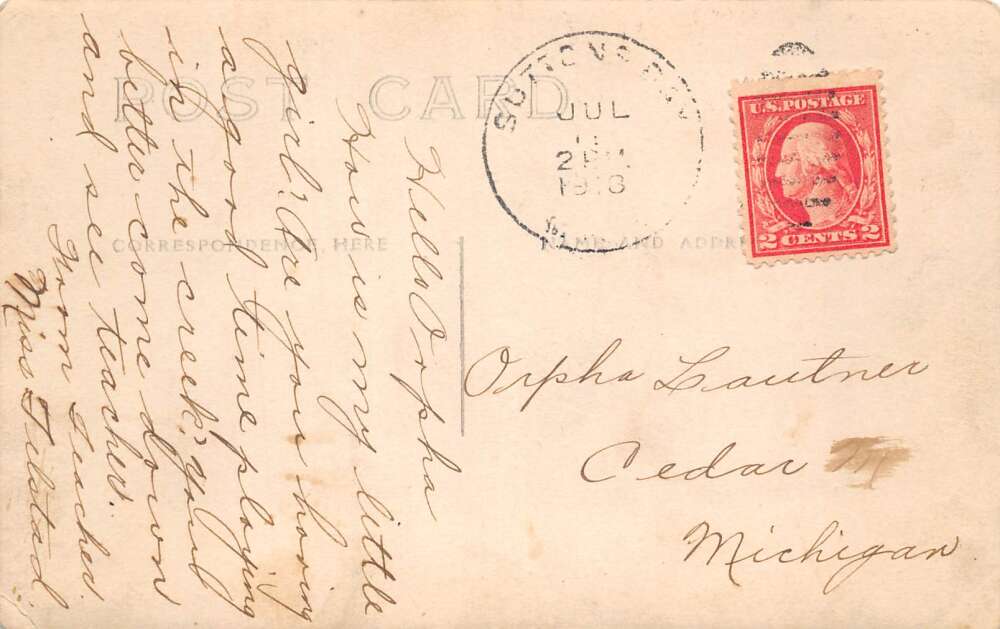 POST CARD
CORRESPONDENCE HERE
NAME AND ADDRE
SUTTONS BAY
JUL
11
2 PM
1918
U.S. POSTAGE
2 CENTS 2
Hello Orpha
How is my little
girl? Are you having
a good time playing
in the creek? you'd
better come down
and see teacher.
From Teacher.
Miss
Orpha Lautner
Cedar M
Michigan